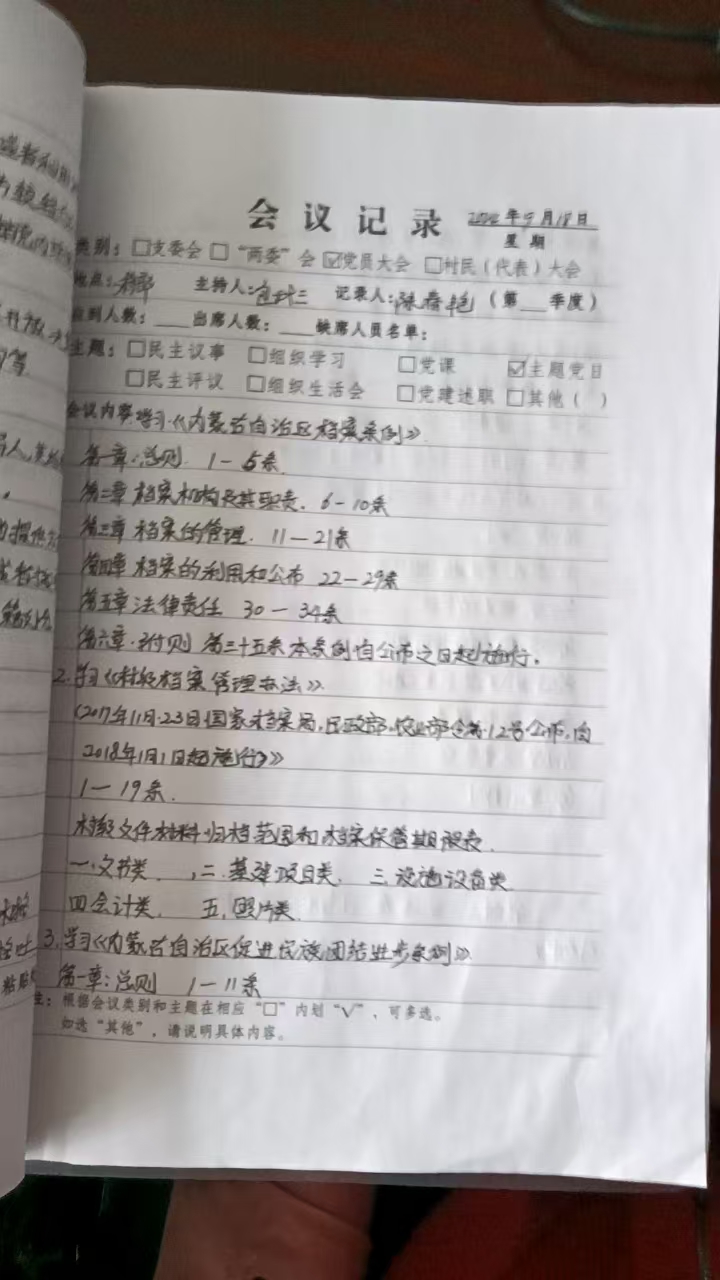 会议记录 年9月18日
星期
类别：□支委会 □“两委”会 ☑党员大会 □村民（代表）大会
地点：村部 主持人： 记录人：陈春艳（第__季度）
应到人数：___出席人数：___缺席人员名单：
主题：□民主议事 □组织学习 □党课 ☑主题党日
□民主评议 □组织生活会 □党建述职 □其他（ ）
会议内容：学习《内蒙古自治区档案条例》
第一章：总则 1—5条
第二章 档案机构及其职责. 6—10条
第三章 档案的管理. 11—21条
第四章 档案的利用和公布 22—29条
第五章 法律责任 30—34条
第六章·附则 第三十五条 本条例自公布之日起施行.
2.学习《村级档案管理办法》
《2017年11月·23日国家档案局,民政部·农业部令第·12号公布,自
2018年1月1日起施行》》
1—19条.
村级文件材料归档范围和档案保管期限表.
一.文书类. 二.基建项目类. 三.设施设备类
四会计类. 五.照片类.
3.学习《内蒙古自治区促进民族团结进步条例》
第一章：总则 1—11条
注：根据会议类别和主题在相应“□”内划“√”，可多选。
如选“其他”，请说明具体内容。